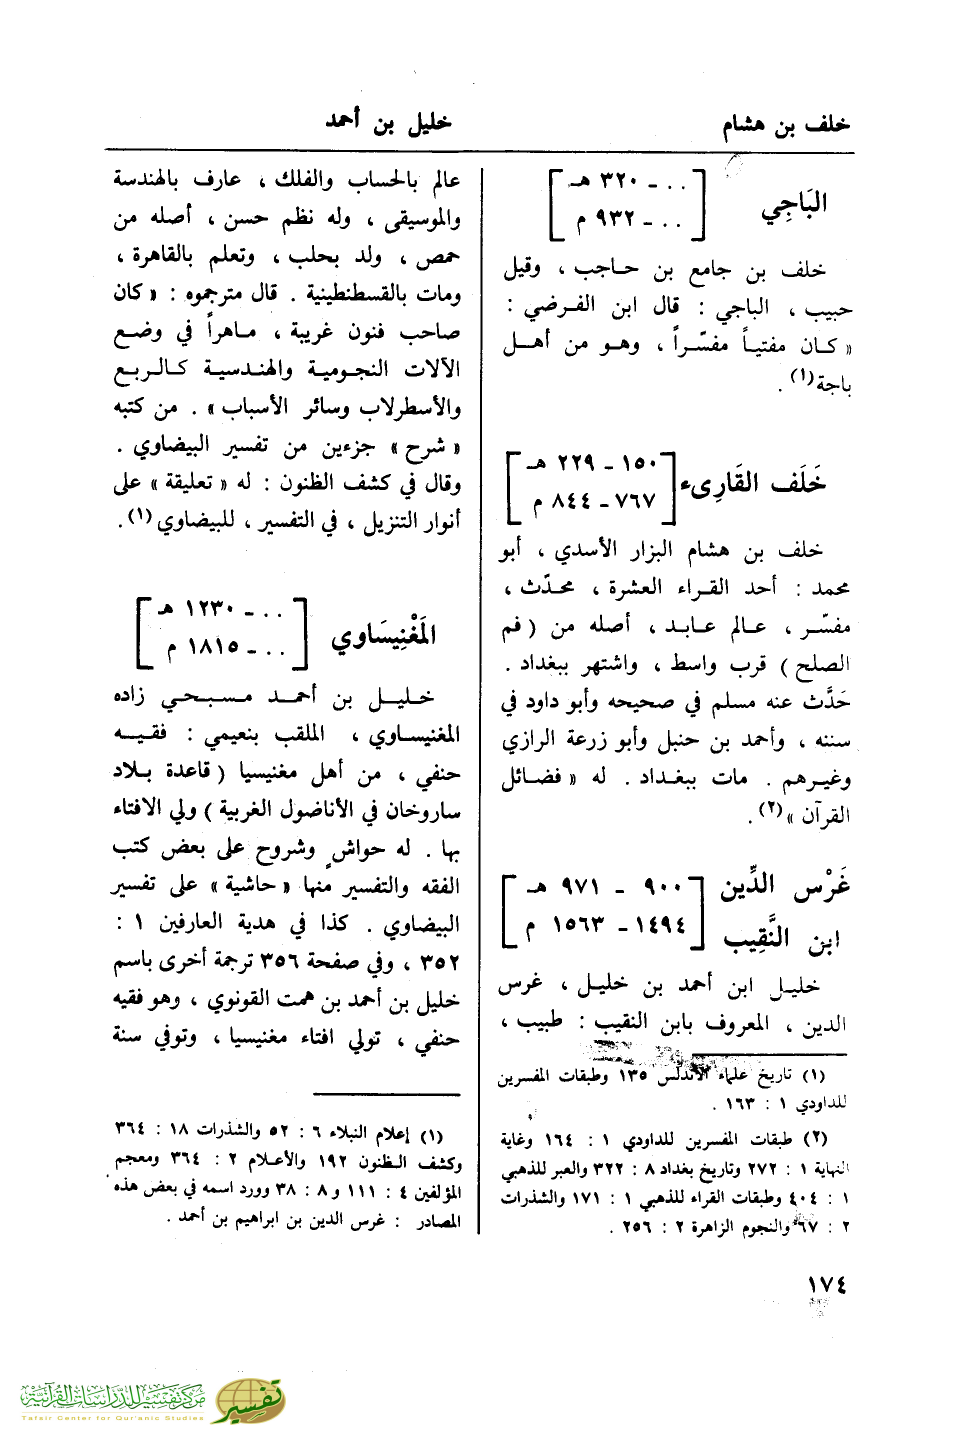 خلف بن هشام
خليل بن أحمد
البَاجِي
[.. ـ ٣٢٠ هـ
.. ـ ٩٣٢ م]
خلف بن جامع بن حاجب ، وقيل
حبيب ، الباجي : قال ابن الفرضي :
« كان مفتياً مفسّراً ، وهو من أهل
باجة(١) .
خَلَف القَارِىء
[١٥٠ ـ ٢٢٩ هـ
٧٦٧ ـ ٨٤٤ م]
خلف بن هشام البزار الأسدي ، أبو
محمد : أحد القراء العشرة ، محدّث ،
مفسّر ، عالم عابد ، أصله من ( فم
الصلح ) قرب واسط ، واشتهر ببغداد .
حَدَّث عنه مسلم في صحيحه وأبو داود في
سننه ، وأحمد بن حنبل وأبو زرعة الرازي
وغيرهم . مات ببغداد . له « فضائل
القرآن »(٢) .
غَرْس الدِّين
ابن النَّقِيب
[٩٠٠ ـ ٩٧١ هـ
١٤٩٤ ـ ١٥٦٣ م]
خليل ابن أحمد بن خليل ، غرس
الدين ، المعروف بابن النقيب : طبيب ،
(١) تاريخ علماء الأندلس ١٣٥ وطبقات المفسرين
للداودي ١ : ١٦٣ .
(٢) طبقات المفسرين للداودي ١ : ١٦٤ وغاية
النهاية ١ : ٢٧٢ وتاريخ بغداد ٨ : ٣٢٢ والعبر للذهبي
١ : ٤٠٤ وطبقات القراء للذهبي ١ : ١٧١ والشذرات
٢ : ٦٧ والنجوم الزاهرة ٢ : ٢٥٦ .
عالم بالحساب والفلك ، عارف بالهندسة
والموسيقى ، وله نظم حسن ، أصله من
حمص ، ولد بحلب ، وتعلم بالقاهرة ،
ومات بالقسطنطينية . قال مترجموه : « كان
صاحب فنون غريبة ، ماهراً في وضع
الآلات النجومية والهندسية كالربع
والأسطرلاب وسائر الأسباب » . من كتبه
« شرح » جزءين من تفسير البيضاوي .
وقال في كشف الظنون : له « تعليقة » على
أنوار التنزيل ، في التفسير ، للبيضاوي (١) .
المَغْنِيسَاوي
[.. ـ ١٢٣٠ هـ
.. ـ ١٨١٥ م]
خليل بن أحمد مسبحي زاده
المغنيساوي ، الملقب بنعيمي : فقيه
حنفي ، من أهل مغنيسيا ( قاعدة بلاد
ساروخان في الأناضول الغربية ) ولي الافتاء
بها . له حواشٍ وشروح على بعض كتب
الفقه والتفسير منها « حاشية » على تفسير
البيضاوي . كذا في هدية العارفين ١ :
٣٥٢ ، وفي صفحة ٣٥٦ ترجمة أخرى باسم
خليل بن أحمد بن همت القونوي ، وهو فقيه
حنفي ، تولي افتاء مغنيسيا ، وتوفي سنة
(١) إعلام النبلاء ٦ : ٥٢ والشذرات ١٨ : ٣٦٤
وكشف الظنون ١٩٢ والأعلام ٢ : ٣٦٤ ومعجم
المؤلفين ٤ : ١١١ و ٨ : ٣٨ وورد اسمه في بعض هذه
المصادر : غرس الدين بن ابراهيم بن أحمد .
١٧٤
مركز تفسير للدراسات القرآنية
Tafsir Center for Qur'anic Studies
تفسير